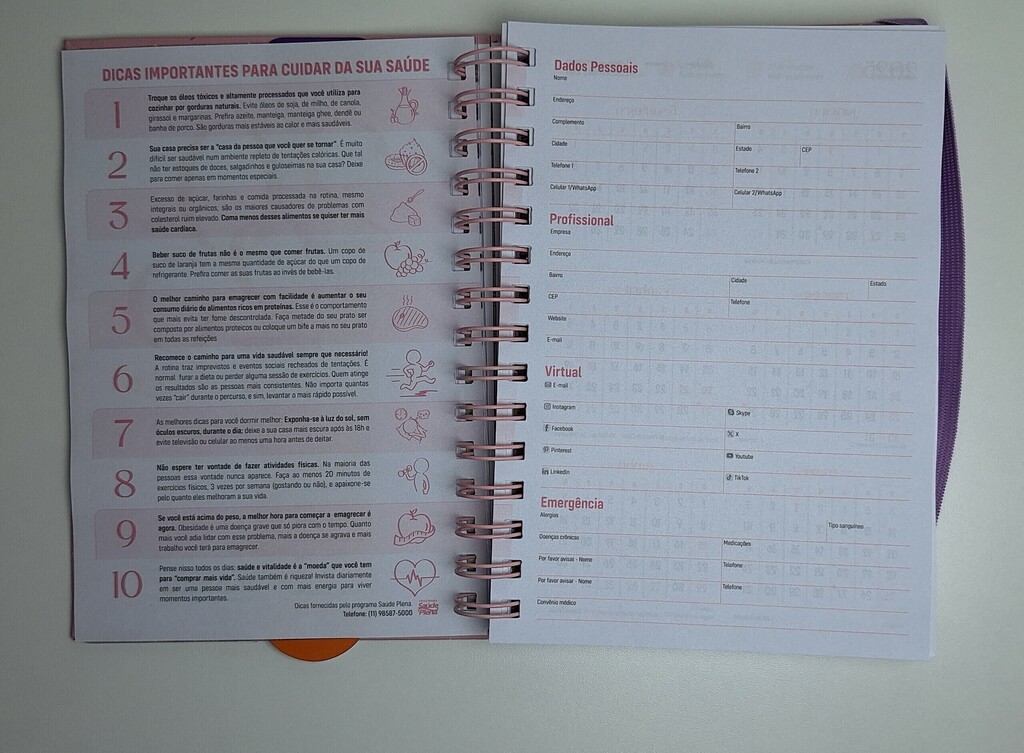 DICAS IMPORTANTES PARA CUIDAR DA SUA SAÚDE
1
Troque os óleos tóxicos e altamente processados que você utiliza para
cozinhar por gorduras naturais. Evite óleos de soja, de milho, de canola,
girassol e margarinas. Prefira azeite, manteiga, manteiga ghee, dendê ou
banha de porco. São gorduras mais estáveis ao calor e mais saudáveis.
2
Sua casa precisa ser a "casa da pessoa que você quer se tornar". É muito
difícil ser saudável num ambiente repleto de tentações calóricas. Que tal
não ter estoques de doces, salgadinhos e guloseimas na sua casa? Deixe
para comer apenas em momentos especiais.
3
Excesso de açúcar, farinhas e comida processada na rotina, mesmo
integrais ou orgânicos, são os maiores causadores de problemas com
colesterol ruim elevado. Coma menos desses alimentos se quiser ter mais
saúde cardíaca.
4
Beber suco de frutas não é o mesmo que comer frutas. Um copo de
suco de laranja tem a mesma quantidade de açúcar do que um copo de
refrigerante. Prefira comer as suas frutas ao invés de bebê-las.
5
O melhor caminho para emagrecer com facilidade é aumentar o seu
consumo diário de alimentos ricos em proteínas. Esse é o comportamento
que mais evita ter fome descontrolada. Faça metade do seu prato ser
composta por alimentos proteicos ou coloque um bife a mais no seu prato
em todas as refeições
6
Recomece o caminho para uma vida saudável sempre que necessário!
A rotina traz imprevistos e eventos sociais recheados de tentações. É
normal furar a dieta ou perder alguma sessão de exercícios. Quem atinge
os resultados são as pessoas mais consistentes. Não importa quantas
vezes "cair" durante o percurso, e sim, levantar o mais rápido possível.
7
As melhores dicas para você dormir melhor: Exponha-se à luz do sol, sem
óculos escuros, durante o dia; deixe a sua casa mais escura após às 18h e
evite televisão ou celular ao menos uma hora antes de deitar.
8
Não espere ter vontade de fazer atividades físicas. Na maioria das
pessoas essa vontade nunca aparece. Faça ao menos 20 minutos de
exercícios físicos, 3 vezes por semana (gostando ou não), e apaixone-se
pelo quanto eles melhoram a sua vida.
9
Se você está acima do peso, a melhor hora para começar a emagrecer é
agora. Obesidade é uma doença grave que só piora com o tempo. Quanto
mais você adia lidar com esse problema, mais a doença se agrava e mais
trabalho você terá para emagrecer.
10
Pense nisso todos os dias: saúde e vitalidade é a "moeda" que você tem
para "comprar mais vida". Saúde também é riqueza! Invista diariamente
em ser uma pessoa mais saudável e com mais energia para viver
momentos importantes.
Dicas fornecidas pelo programa Saúde Plena.
Telefone: (11) 98587-5000
Saúde
Plena
Dados Pessoais
Nome
Endereço
Complemento Bairro
Cidade Estado CEP
Telefone 1 Telefone 2
Celular 1/WhatsApp Celular 2/WhatsApp
Profissional
Empresa
Endereço
Bairro Cidade Estado
CEP Telefone
Website
E-mail
Virtual
E-mail
Instagram Skype
Facebook X
Pinterest Youtube
Linkedin TikTok
Emergência
Alergias Tipo sanguíneo
Doenças crônicas Medicações
Por favor avisar - Nome Telefone
Por favor avisar - Nome Telefone
Convênio médico